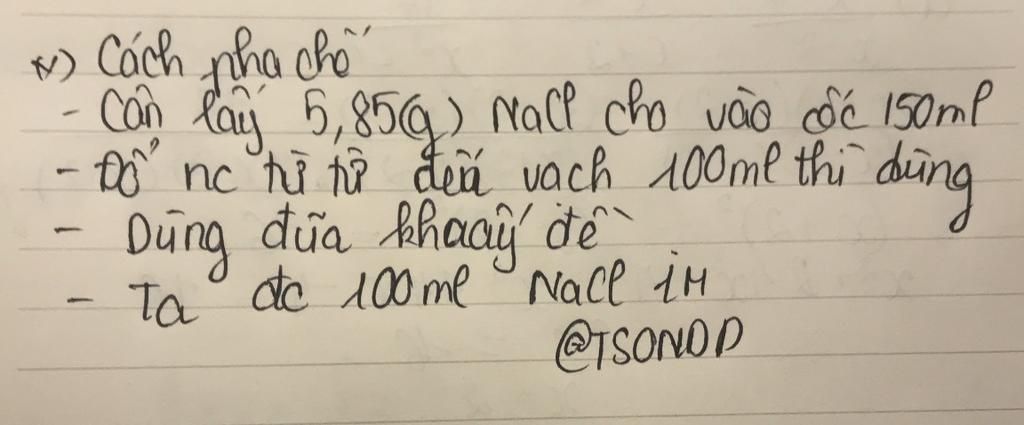 *) Cách pha chế
- Cân lấy 5,85(g) NaCl cho vào cốc 150ml
- Đổ nc từ từ đến vạch 100ml thì dừng
- Dùng đũa khaấy đề
- Ta đc 100ml NaCl 1M
@TSONDD